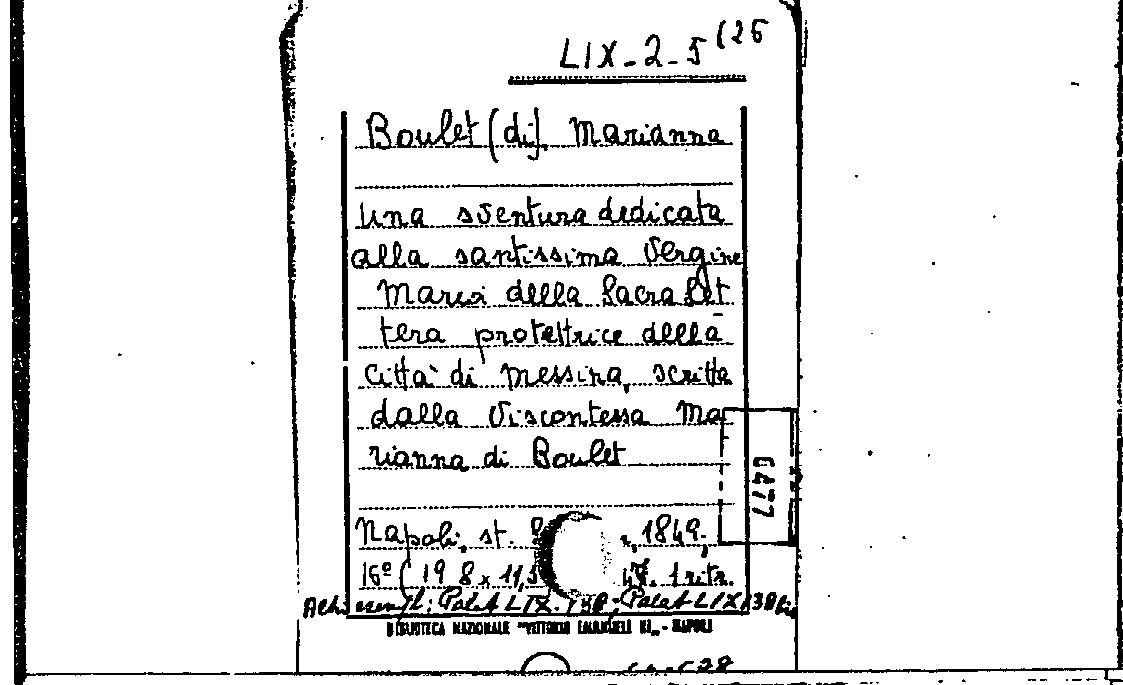 LIX-2-5(26
Boulet (di), Marianna
una sventura dedicata
alla santissima Vergine
Maria della Sacra Let
tera protettrice della
città di Messina, scritta
dalla Viscontessa Ma
rianna di Boulet
6477
Napoli, st. 1849.
16° (19 8 x 11,5 47. 1 ritr.
Altri esempl: Palat LIX. Palat LIX
BIBLIOTECA NAZIONALE "VITTORIO EMANUELE III„ - NAPOLI